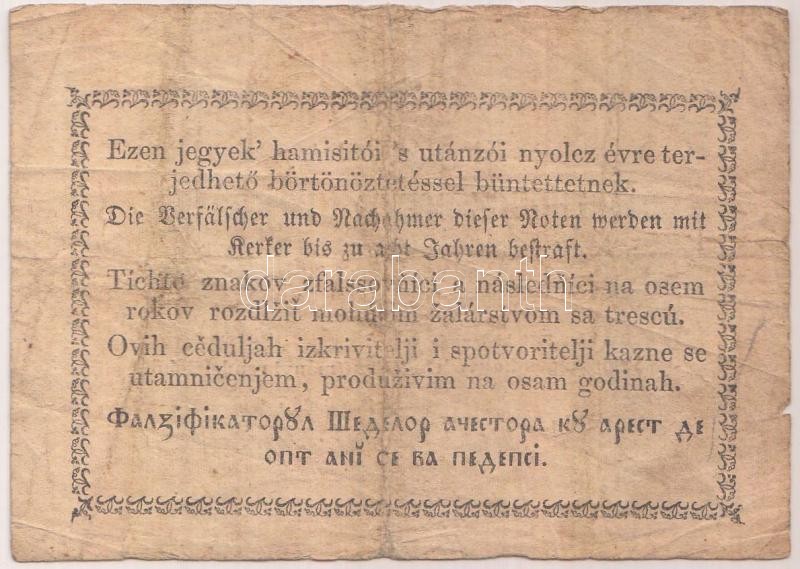 Ezen jegyek’ hamisitói ’s utánzói nyolcz évre ter-
jedhető börtönöztetéssel büntettetnek.
Die Verfälscher und Nachahmer dieser Noten werden mit
Kerker bis zu acht Jahren bestraft.
Tíchto znakov zfalssovňíci a následňíci na osem
rokov rozdlžit mohúcim žalárstvom sa trescú.
Ovih cĕduljah izkrivitelji i spotvoritelji kazne se
utamničenjem, produživim na osam godinah.
Фалꙃіфікаторꙋл Шеделор ачестора кꙋ арест де
опт анĭ се ва педепсі.
darabanth